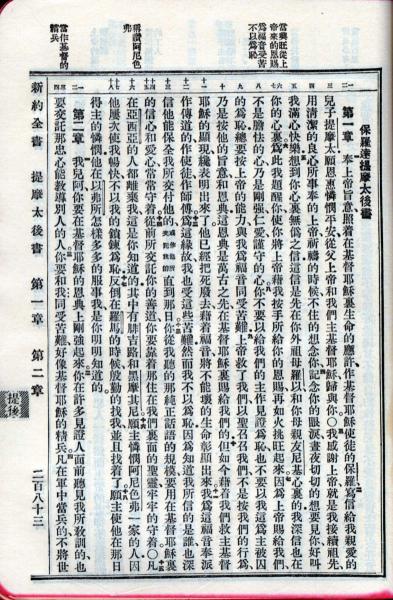 當興旺從上
帝來的恩賜
爲福音受苦
不以爲恥
稱讚阿尼色
弗
當作基督的
精兵
保羅達提摩太後書
第一章 奉上帝旨意、照着在基督耶穌裏生命的應許、作基督耶穌使徒的保羅、寫信給我親愛的
兒子提摩太、願恩惠憐憫平安、從父上帝和我們主基督耶穌歸與你○我感謝上帝、就是我接續祖先
用清潔的良心所事奉的上帝、祈禱的時候、不住的想念你、記念你的眼淚、晝夜切切的想要見你、好叫
我滿心快樂、想到你心裏無僞之信、這信是先在你外祖母羅以、和你母親友尼基心裏的、我深信也在
你的心裏、爲此我題醒你、使你將上帝藉我按手所給你的恩賜、再如火挑旺起來、因爲上帝賜給我們
不是膽怯的心、乃是剛强仁愛謹守的心、你不要以給我們的主作見證爲恥、也不要以我這爲主被囚
的爲恥、總要按上帝的能力、與我爲福音同受苦難、上帝救了我們、以聖召召我們、不是按我們的行爲、
乃是按他的旨意和恩典、這恩典是萬古之先、在基督耶穌裏賜給我們的、但如今藉着我們救主基督
耶穌的顯現、纔表明出來了、他已經把死廢去、藉着福音、將不能壞的生命彰顯出來、我爲這福音奉派
作傳道的、作使徒、作師傅、爲這緣故、我也受這些苦難、然而我不以爲恥、因爲知道我所信的是誰、也深
信他能保全我所交付他的、或作他所交託我的直到那日、你從我聽的那純正話語的規模、要用在基督耶穌裏
的信心和愛心、常常守着、從前所交託你的善道、你要靠着那住在我們裏面的聖靈、牢牢的守着○凡
在亞西亞的人都離棄我、這是你知道的、其中有腓吉路和黑摩其尼、願主憐憫阿尼色弗一家的人、因
他屢次使我暢快、不以我的鎖鍊爲恥、反倒在羅馬的時候、殷勤的找我、並且找着了、願主使他在那日
得主的憐憫、他在以弗所怎樣多多的服事我、是你明明知道的、
第二章 我兒阿、你要在基督耶穌的恩典上剛强起來、你在許多見證人面前聽見我所教訓的、也
要交託那忠心能教導別人的人、你要和我同受苦難、好像基督耶穌的精兵、凡在軍中當兵的、不將世
新約全書 提摩太後書 第一章 第二章 二百八十三
提後